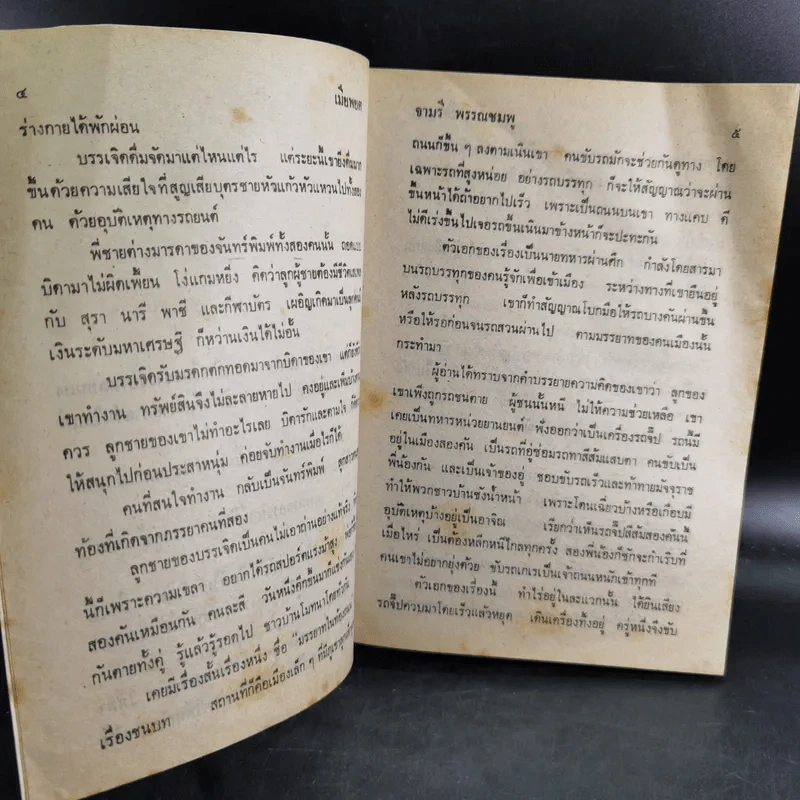 ๔
เมียพยศ
ร่างกายได้พักผ่อน
บรรเจิดดื่มจัดมาแต่ไหนแต่ไร แต่ระยะนี้เขายิ่งดื่มมาก
ขึ้นด้วยความเสียใจที่สูญเสียบุตรชายหัวแก้วหัวแหวนไปทั้งสอง
คน ด้วยอุบัติเหตุทางรถยนต์
พี่ชายต่างมารดาของจันทร์พิมพ์ทั้งสองคนนั้น ถอดแบบ
บิดามาไม่ผิดเพี้ยน โง่แกมหยิ่ง คิดว่าลูกผู้ชายต้องมีชีวิต
กับ สุรา นารี พาชี และกีฬาบัตร เผอิญเกิดมาเป็นลูกคนมี
เงินระดับมหาเศรษฐี ก็หว่านเงินได้ไม่อั้น
บรรเจิดรับมรดกตกทอดมาจากบิดาของเขา แต่ก็ยังดีที่
เขาทำงาน ทรัพย์สินจึงไม่ละลายหายไป คงอยู่และเพิ่มบ้างตาม
ควร ลูกชายของเขาไม่ทำอะไรเลย บิดารักและตามใจ
ให้สนุกไปก่อนประสาหนุ่ม ค่อยจับทำงานเมื่อไรก็ได้
คนที่สนใจทำงาน กลับเป็นจันทร์พิมพ์ ลูกสาว
ท้องที่เกิดจากภรรยาคนที่สอง
ลูกชายของบรรเจิดเป็นคนไม่เอาถ่านอย่างแท้จริง
นี้ก็เพราะความเขลา อยากได้รถสปอร์ตแรงม้าสูง
สองคันเหมือนกัน คนละสี วันหนึ่งคึกขึ้นมาก็แข่งกันเอง
กันตายทั้งคู่ รู้แล้วรู้รอดไป ชาวบ้านโมทนาโดยทั่วกัน
เคยมีเรื่องสั้นเรื่องหนึ่ง ชื่อ “มรรยาทในท้องถนน
เรื่องชนบท สถานที่ก็คือเมืองเล็ก ๆ ที่มีภูเขาลูก
จามรี พรรณชมพู
๕
ถนนก็ขึ้น ๆ ลงตามเนินเขา คนขับรถมักจะช่วยกันดูทาง โดย
เฉพาะรถที่สูงหน่อย อย่างรถบรรทุก ก็จะให้สัญญาณว่าจะผ่าน
ขึ้นหน้าได้ถ้าอยากไปเร็ว เพราะเป็นถนนบนเขา ทางแคบ ดี
ไม่ดีเร่งขึ้นไปเจอรถขึ้นเนินมาข้างหน้าก็จะปะทะกัน
ตัวเอกของเรื่องเป็นนายทหารผ่านศึก กำลังโดยสารมา
บนรถบรรทุกของคนรู้จักเพื่อเข้าเมือง ระหว่างทางที่เขายืนอยู่
หลังรถบรรทุก เขาก็ทำสัญญาณโบกมือให้รถบางคันผ่านขึ้น
หรือให้รอก่อนจนรถสวนผ่านไป ตามมรรยาทของคนเมืองนั้น
กระทำมา
ผู้อ่านได้ทราบจากคำบรรยายความคิดของเขาว่า ลูกของ
เขาเพิ่งถูกรถชนตาย ผู้ชนนั้นหนี ไม่ให้ความช่วยเหลือ เขา
เคยเป็นทหารหน่วยยานยนต์ ฟังออกว่าเป็นเครื่องรถจี๊ป รถนี้มี
อยู่ในเมืองสองคัน เป็นรถที่อู่ซ่อมรถทาสีส้มแสบตา คนขับเป็น
พี่น้องกัน และเป็นเจ้าของอู่ ชอบขับรถเร็วและท้าทายมัจจุราช
ทำให้พวกชาวบ้านชังน้ำหน้า เพราะโดนเฉี่ยวบ้างหรือเกือบมี
อุบัติเหตุบ้างอยู่เป็นอาจิณ เรียกว่าเห็นรถจี๊ปสีส้มสองคันนี้
เมื่อไหร่ เป็นต้องหลีกหนีไกลทุกครั้ง สองพี่น้องก็ชักจะกำเริบที่
คนเขาไม่อยากยุ่งด้วย ขับรถเกเรเป็นเจ้าถนนหนักเข้าทุกที
ตัวเอกของเรื่องนี้ ทำไร่อยู่ในละแวกนั้น ได้ยินเสียง
รถจี๊ปควบมาโดยเร็วแล้วหยุด เดินเครื่องทิ้งอยู่ ครู่หนึ่งจึงขับ